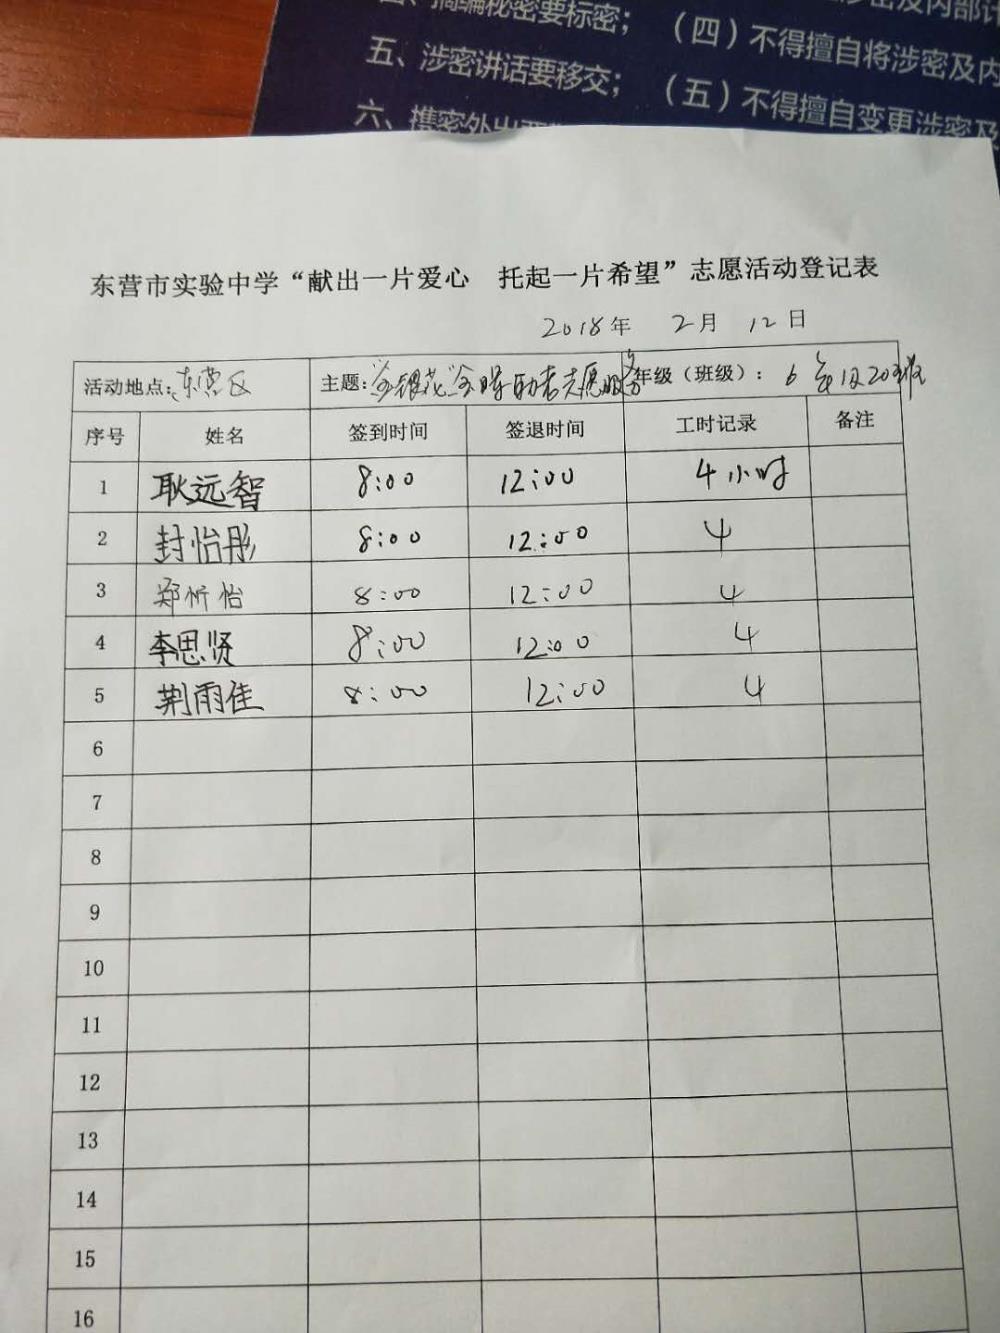 四、摘编秘密要标密；
五、涉密讲话要移交；
六、携密外出
（四）不得擅自将涉密及内
（五）不得擅自变更涉密及
东营市实验中学“献出一片爱心 托起一片希望”志愿活动登记表
2018年 2月 12日
活动地点：东营区 主题：金银花 志愿服务 年级（班级）： 6年级20班
序号 姓名 签到时间 签退时间 工时记录 备注
1 耿远智 8:00 12:00 4小时
2 封怡彤 8:00 12:00 4
3 郑忻怡 8:00 12:00 4
4 李思贤 8:00 12:00 4
5 荆雨佳 8:00 12:00 4
6
7
8
9
10
11
12
13
14
15
16